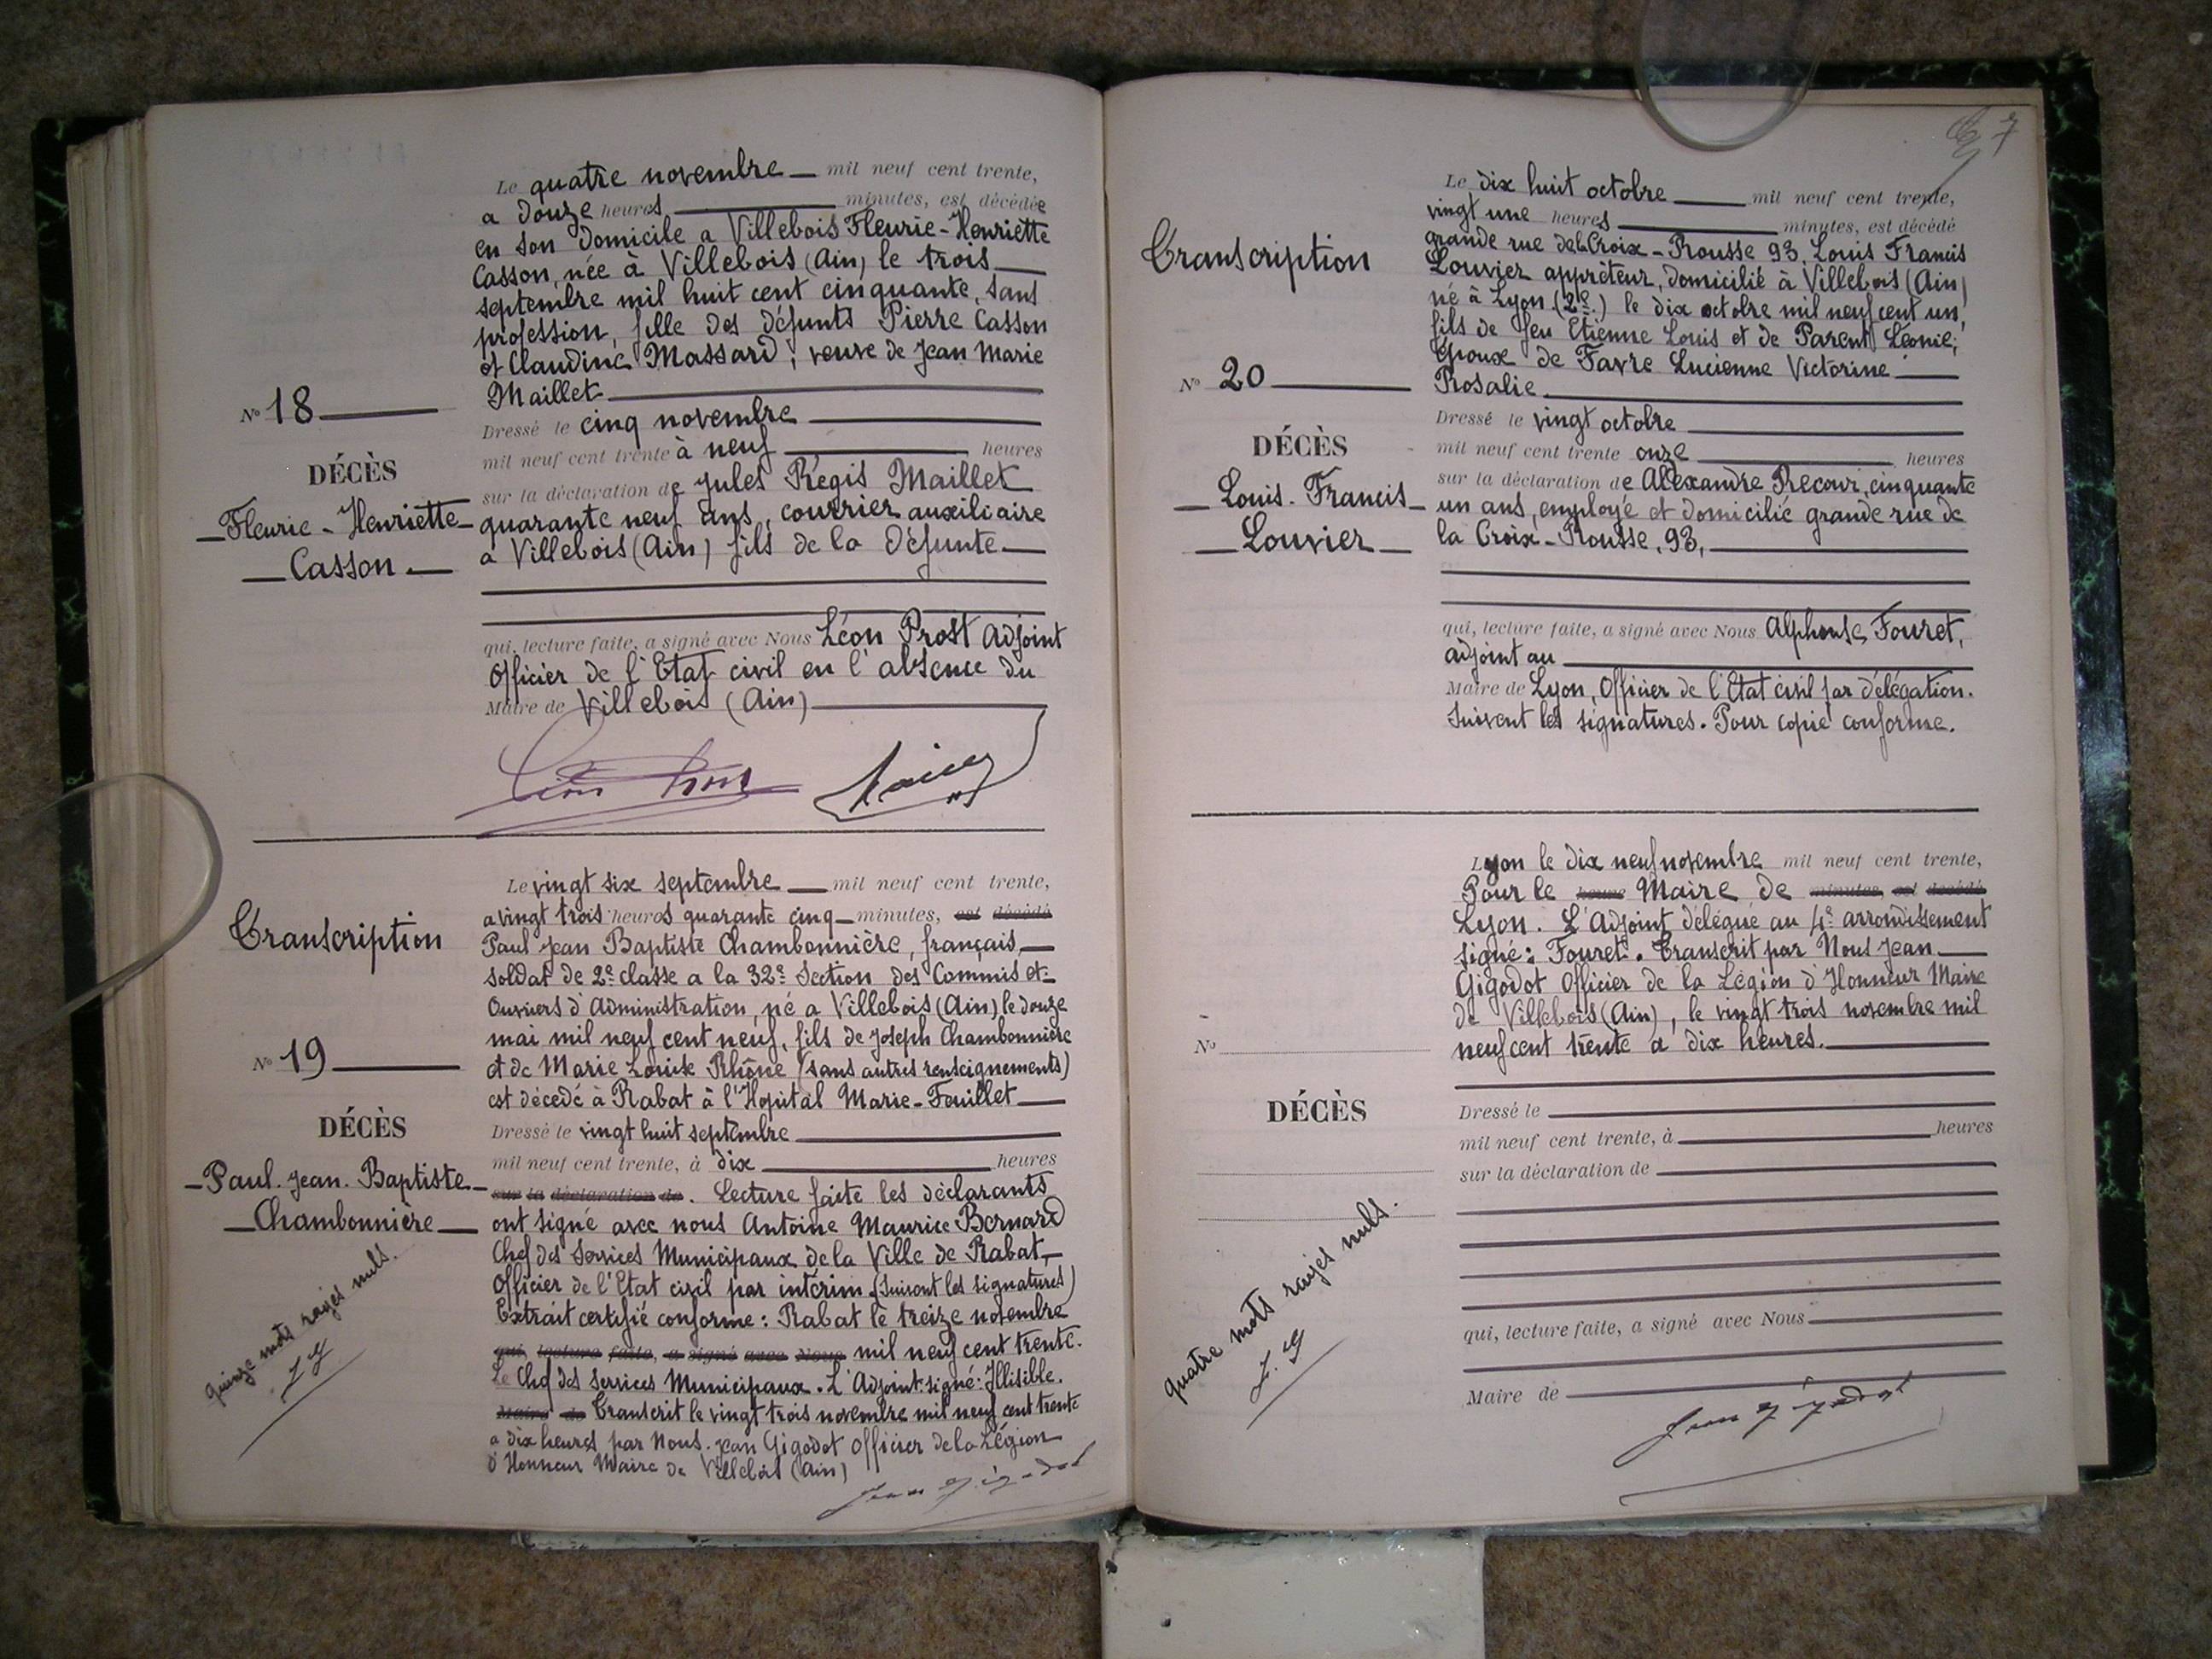 Le quatre novembre mil neuf cent trente,
a douze heures minutes, est décédée
en son domicile a Villebois Fleurie-Henriette
Casson, née à Villebois (Ain) le trois
septembre mil huit cent cinquante, sans
profession, fille des défunts Pierre Casson
et Claudine Massard, veuve de Jean Marie
Maillet
Nº 18
DÉCÈS
Fleurie-Henriette
Casson.
Dressé le cinq novembre
mil neuf cent trente à neuf heures
sur la déclaration de Jules Régis Maillet
quarante neuf ans, courrier auxiliaire
a Villebois (Ain) fils de la défunte
qui, lecture faite, a signé avec Nous Léon Prost Adjoint
Officier de l'Etat civil en l'absence du
Maire de Villebois (Ain)
Transcription
Nº 19
DÉCÈS
Paul. Jean. Baptiste
Chambonnière
quinze mots rayés nuls.
J G
Le vingt six septembre mil neuf cent trente,
a vingt trois heures quarante cinq minutes, est décédé
Paul Jean Baptiste Chambonnière, français,
soldat de 2e classe a la 32e Section des Commis et
Ouvriers d'Administration, né a Villebois (Ain) le douze
mai mil neuf cent neuf, fils de Joseph Chambonnière
et de Marie Louise Rhône (sans autres renseignements)
est décédé à Rabat à l'Hopital Marie-Feuillet
Dressé le vingt huit septembre
mil neuf cent trente, à dix heures
sur la déclaration de. Lecture faite les déclarants
ont signé avec nous Antoine Maurice Bernard
Chef des Services Municipaux de la Ville de Rabat,
Officier de l'Etat civil par intérim. (Suivent les signatures)
Extrait certifié conforme: Rabat le treize novembre
qui, lecture faite, a signé avec Nous mil neuf cent trente.
Le Chef des Services Municipaux. L'Adjoint signé: Illisible.
Maire de Transcrit le vingt trois novembre mil neuf cent trente
a dix heures par Nous. Jean Gigodot Officier de la Légion
d'Honneur Maire de Villebois (Ain)
Jean Gigodot
7
Transcription
Nº 20
DÉCÈS
Louis-Francis
Louvier
Le dix huit octobre mil neuf cent trente,
vingt une heures minutes, est décédé
grande rue de la Croix-Rousse 93, Louis Francis
Louvier apprêteur, domicilié à Villebois (Ain)
né à Lyon (2e.) le dix octobre mil neuf cent un,
fils de feu Etienne Louis et de Parent Léonie;
Epoux de Favre Lucienne Victorine
Rosalie
Dressé le vingt octobre
mil neuf cent trente onze heures
sur la déclaration de Alexandre Recour, cinquante
un ans, employé et domicilié grande rue de
la Croix-Rousse, 93,
qui, lecture faite, a signé avec Nous Alphonse Fouret,
adjoint au
Maire de Lyon, Officier de l'Etat civil par délégation.
Suivent les signatures. Pour copie conforme.
Nº
DÉCÈS
quatre mots rayés nuls.
J. G
Lyon le dix neuf novembre mil neuf cent trente,
Pour le heures Maire de minutes, est décédé
Lyon. L'Adjoint délégué au 4e arrondissement
signé: Fouret. Transcrit par Nous Jean
Gigodot Officier de la Légion d'Honneur Maire
de Villebois (Ain), le vingt trois novembre mil
neuf cent trente a dix heures.
Dressé le
mil neuf cent trente, à heures
sur la déclaration de
qui, lecture faite, a signé avec Nous
Maire de
Jean Gigodot